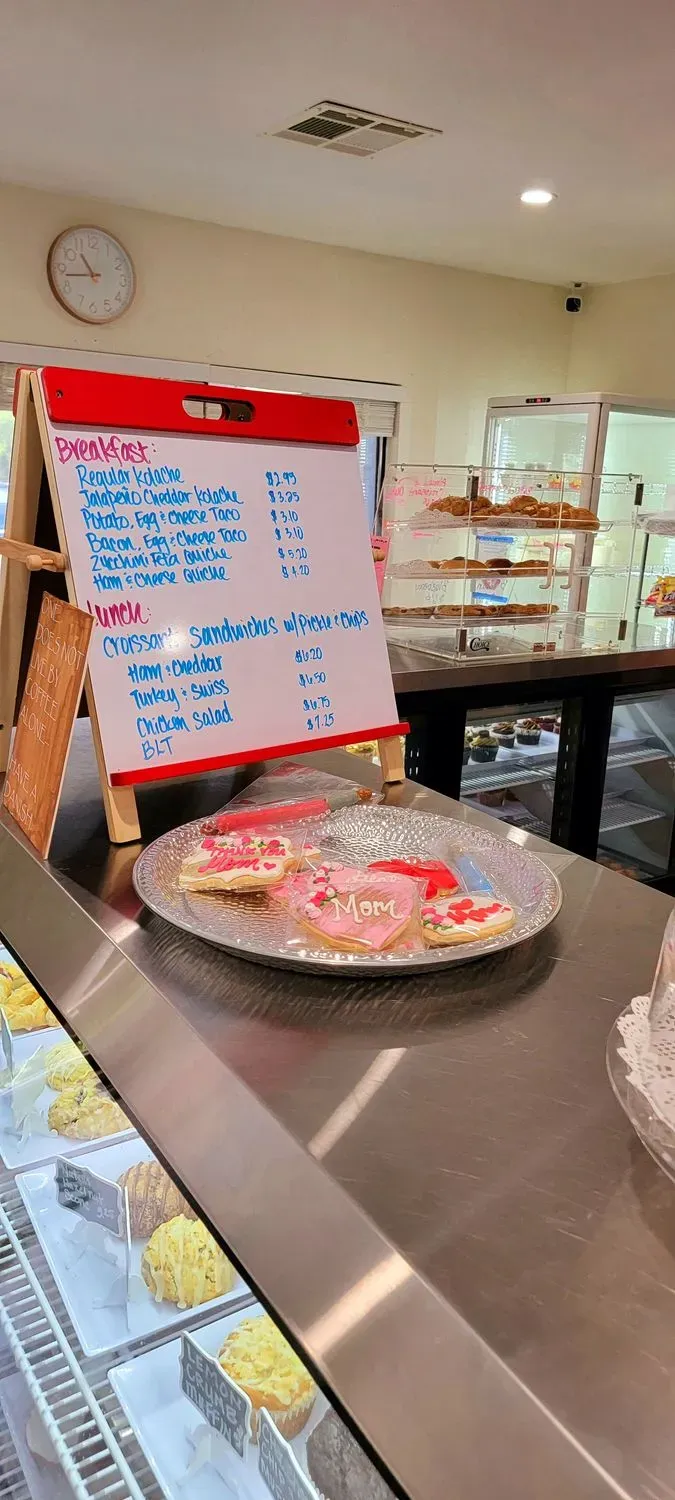 12
Breakfast:
Regular Kolache $2.95
Jalapeño Cheddar Kolache $3.25
Potato, Egg & Cheese Taco $3.10
Bacon, Egg & Cheese Taco $3.10
Zucchini Feta Quiche $5.20
Ham & Cheese Quiche $4.20
Lunch:
Croissant Sandwiches w/Pickle & Chips
Ham & Cheddar $6.20
Turkey & Swiss $6.50
Chicken Salad $6.75
BLT $7.25
ONE
DOES NOT
LIVE BY
COFFEE
ALONE.
HAVE A
DANISH
Mom
Mom
CHOICE
LEMON
CRUMB
MUFFIN